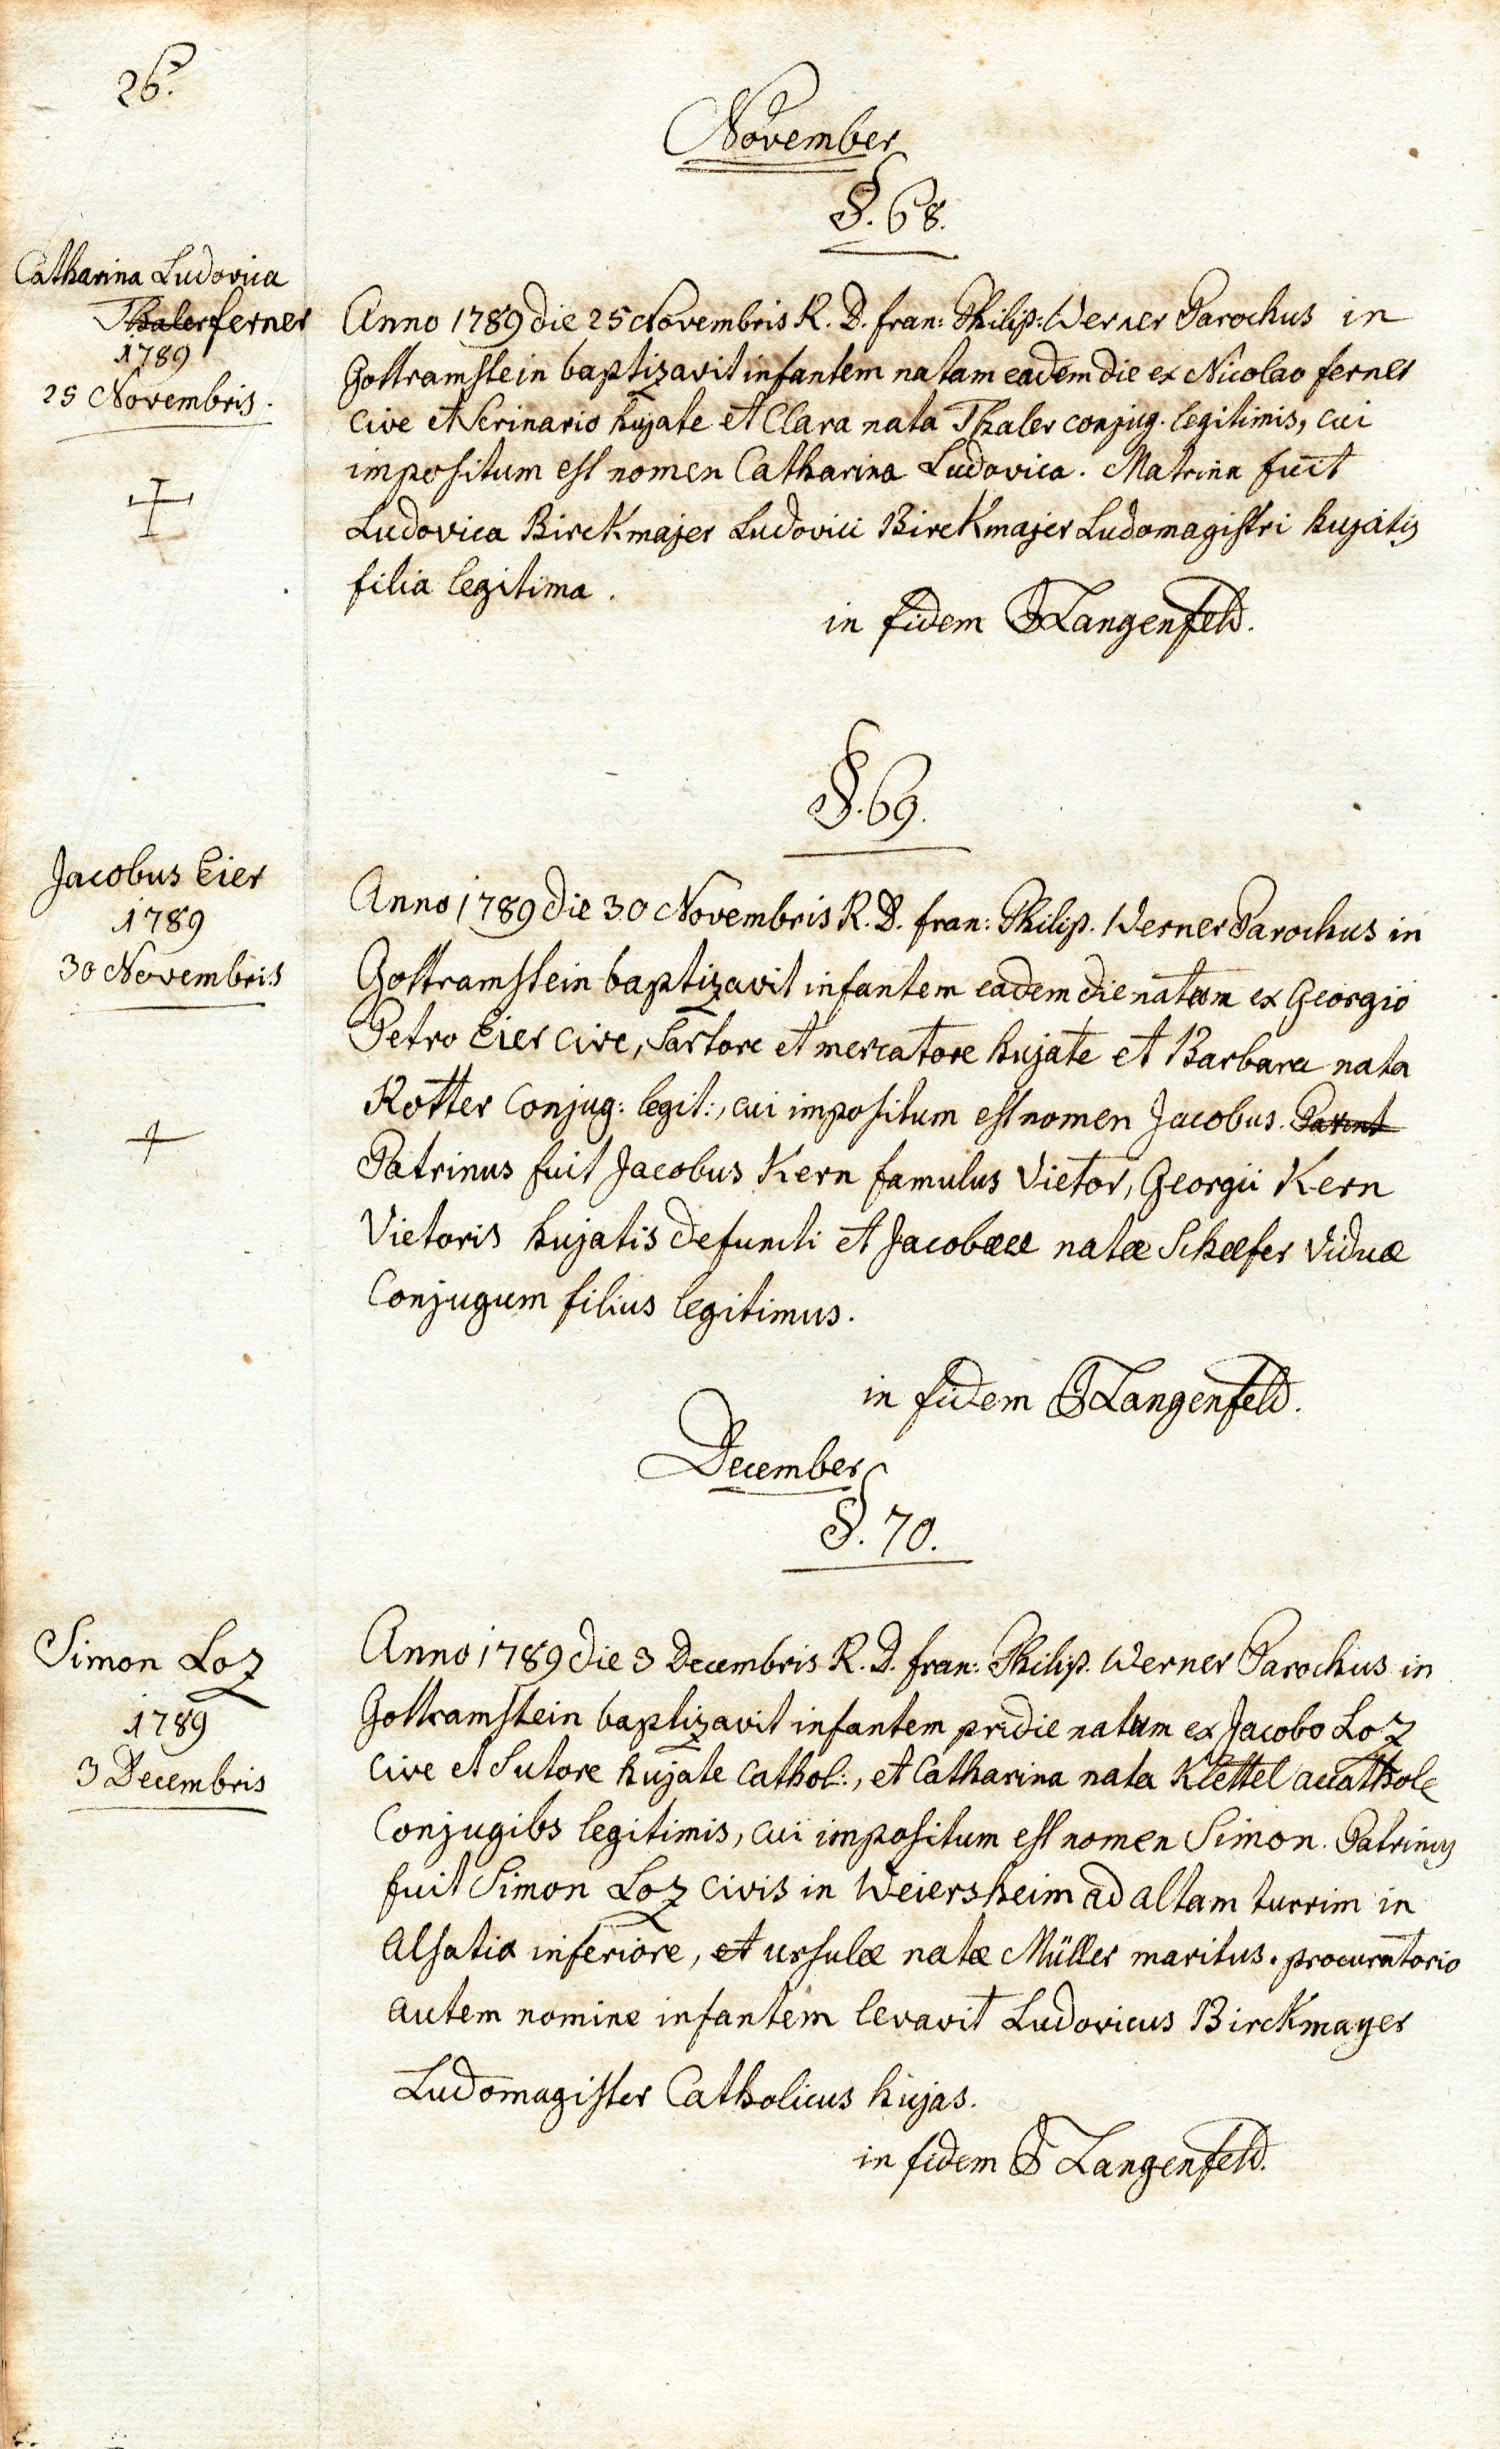 26.
November
§. 68.
Catharina Ludovica
Thaler ferner
1789
25 Novembris.
Anno 1789 die 25 Novembris R. D. fran: Philip: Werner Parochus in
Gottramstein baptizavit infantem natam eadem die ex Nicolao ferner
cive et Serinario hujate et Clara nata Thaler conjug. legitimis, cui
impositum est nomen Catharina Ludovica. Matrina fuit
Ludovica Birckmajer Ludovici Birckmajer Ludomagistri hujatis
filia legitima.
in fidem Langenfeld.
§. 69.
Jacobus Eier
1789
30 Novembris
Anno 1789 die 30 Novembris R. D. fran: Philip. Werner Parochus in
Gottramstein baptizavit infantem eadem die natum ex Georgio
Petro Eier cive, Sartore et mercatore hujate et Barbara nata
Rotter Conjug: legit:, cui impositum est nomen Jacobus.
Patrinus fuit Jacobus Kern famulus Vietor, Georgii Kern
Vietoris hujatis defuncti et Jacobææ natæ Schæfer Viduæ
Conjugum filius legitimus.
in fidem Langenfeld.
December
§. 70.
Simon Loz
1789
3 Decembris
Anno 1789 die 3 Decembris R. D. fran: Philip. Werner Parochus in
Gottramstein baptizavit infantem pridie natum ex Jacobo Loz
cive et Sutore hujate cathol:, et Catharina nata Klettel
Conjugibs legitimis, cui impositum est nomen Simon. Patrinus
fuit Simon Loz civis in Weiersheim ad altam turrim in
Alsatia inferiore, et ursulæ natæ Müller maritus. procuratorio
autem nomine infantem levavit Ludovicus Birckmayer
Ludomagister Catholicus hujas.
in fidem Langenfeld.